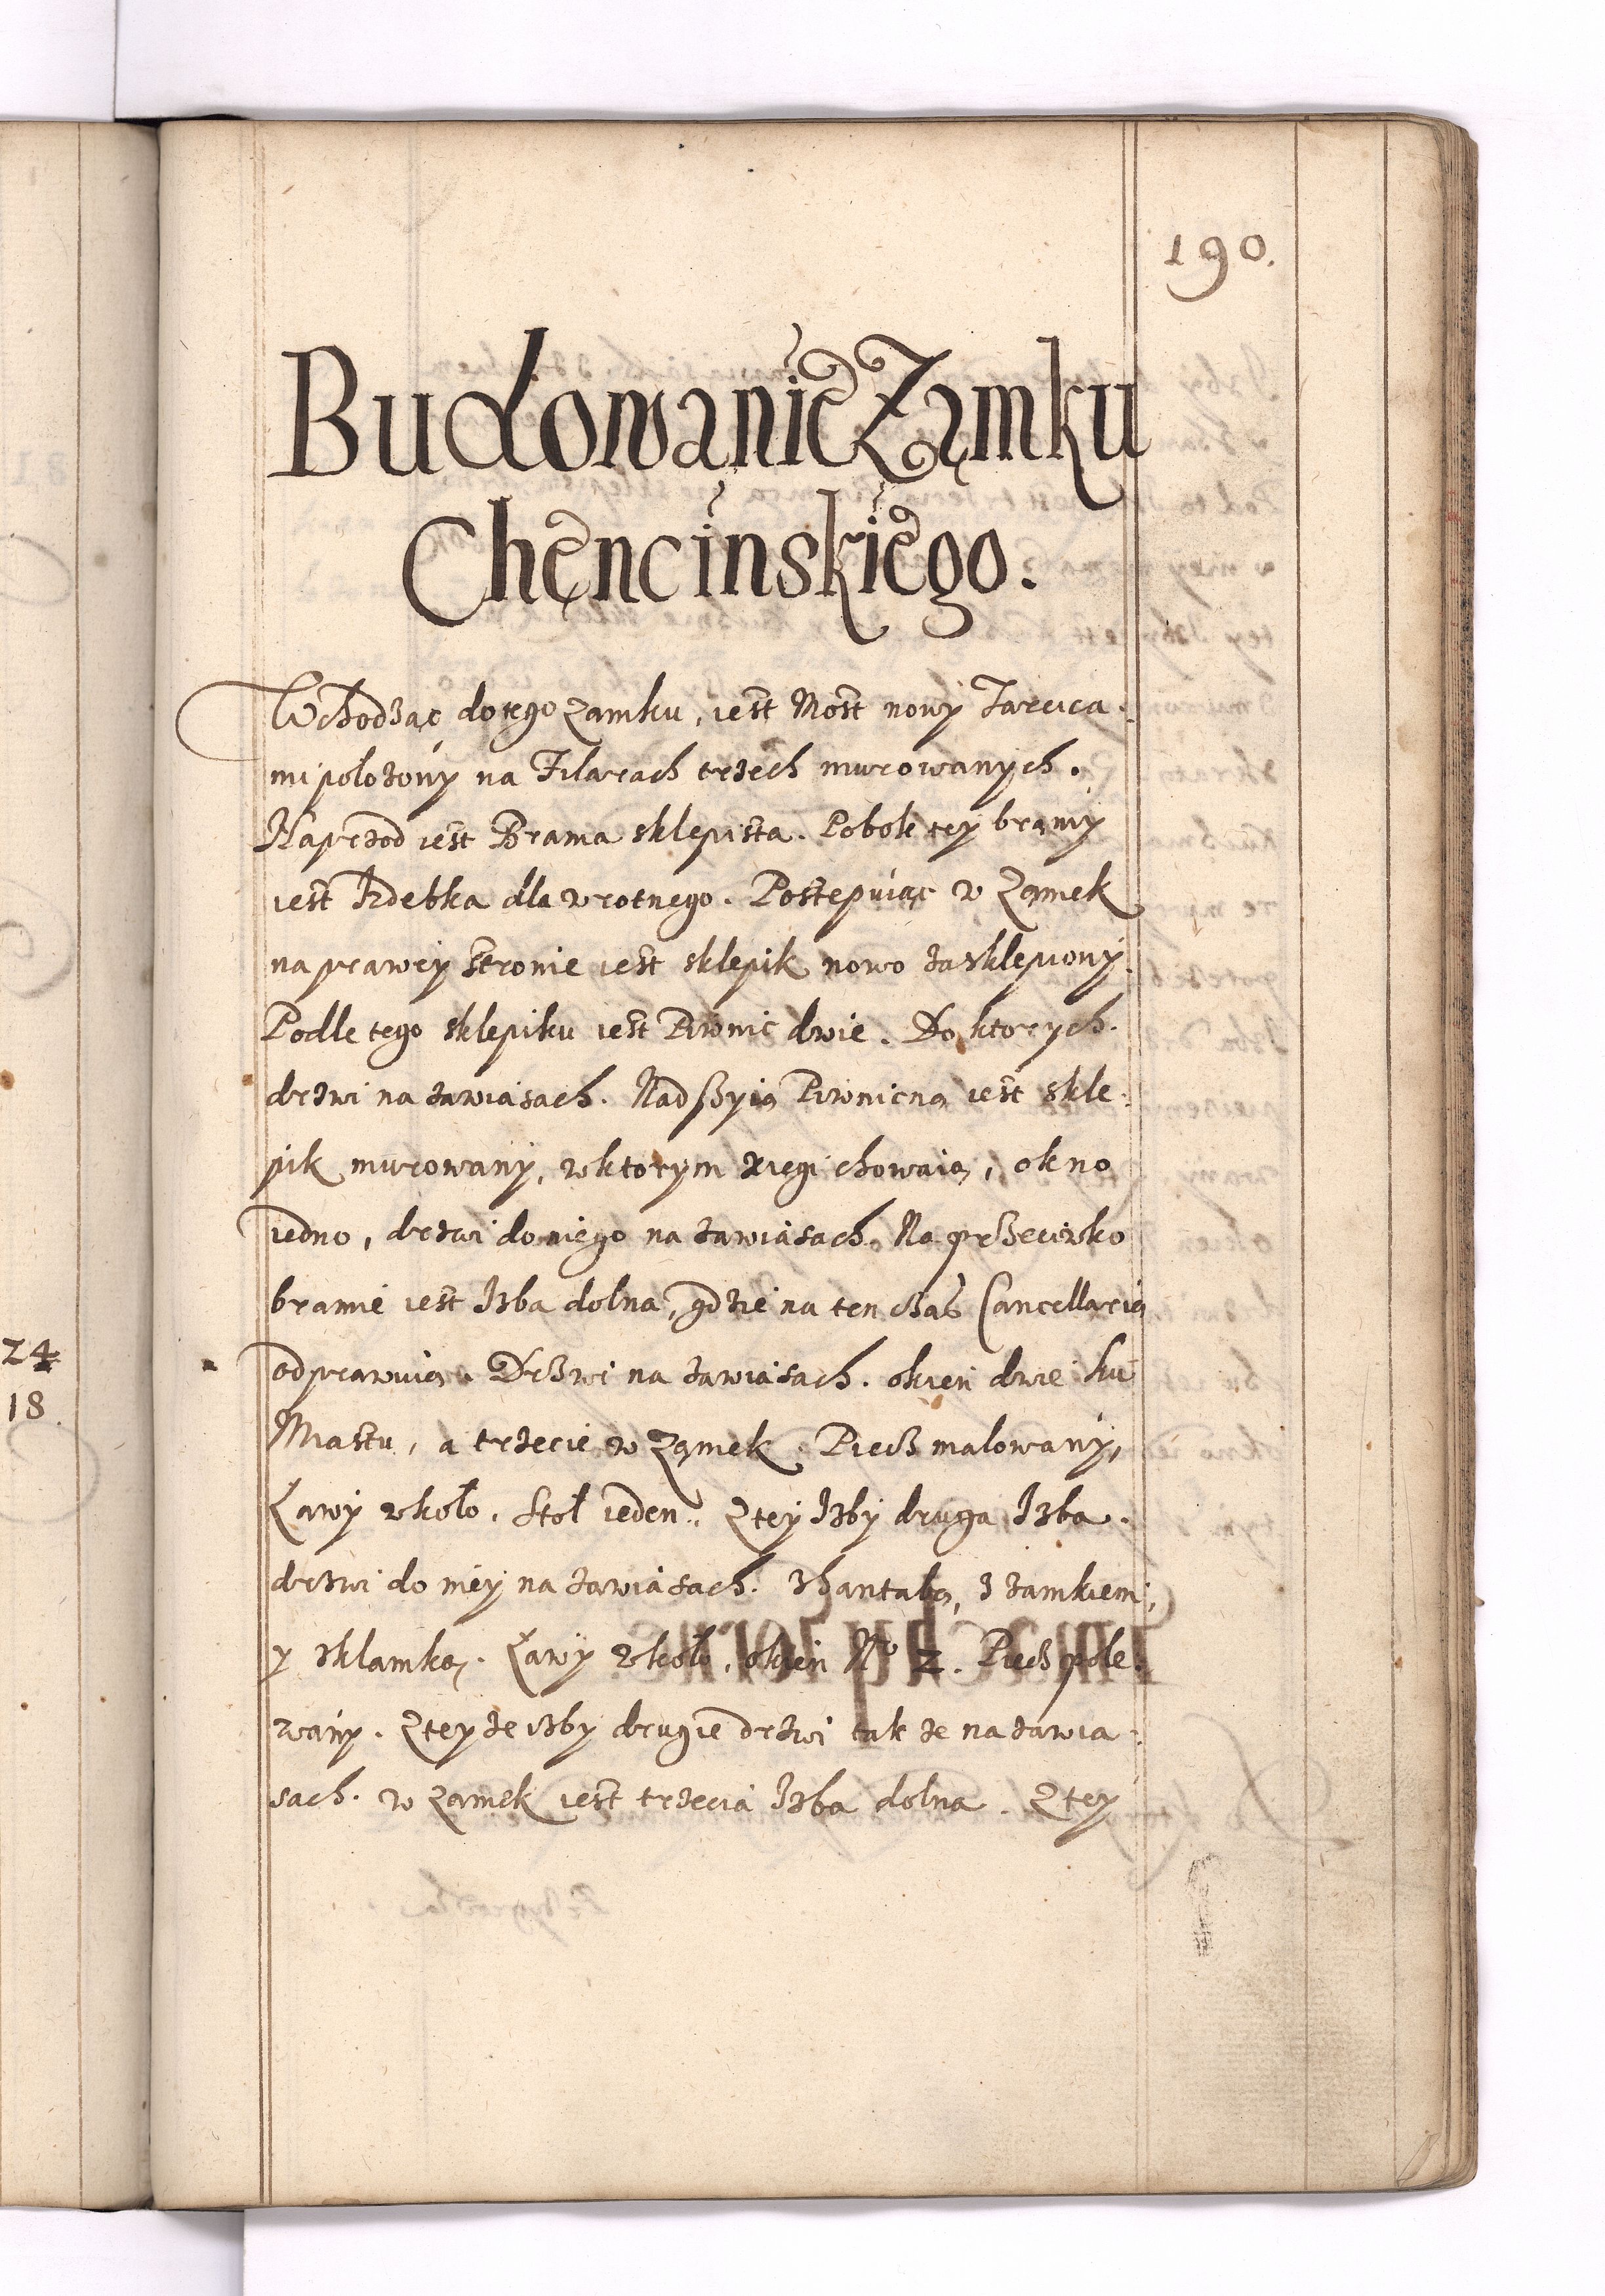 190.
Budowanie Zamku
Chencinskiego.
Wchodząc do tego zamku, iest Most nowy Tarcica
mi położony na Filarach trzech murowanych.
Naprzod iest Brama sklepista. Pobok tey bramy
iest Izdebka dla wrotnego. Postepuiąc w Zamek
na prawey stronie iest sklepik nowo zasklepiony.
Podle tego sklepiku iest Piwnic dwie. Do ktorych
drzwi na zawiasach. Nad szyią Piwniczną iest skle:
pik murowany, w ktorym xięgi chowaią, okno
iedno, drzwi do niego na zawiasach. Na przeciwko
bramie iest Izba dolna, gdzie na ten czas Cancellarią
odprawuią. Drzwi na zawiasach. okien dwie ku
Miastu, a trzecie w Zamek. Piecz malowany,
Ławy wkoło. Stoł ieden. Z tey Izby druga Izba.
drzwi do niey na zawiasach. z hantabą, z zamkiem,
y z klamką. Ławy wkoło, okien No 2. Piecz pole:
wany. Z tey że izby drugie drzwi tak że na zawia:
sach. w zamek iest trzecia Izba dolna. Z tey
24
18